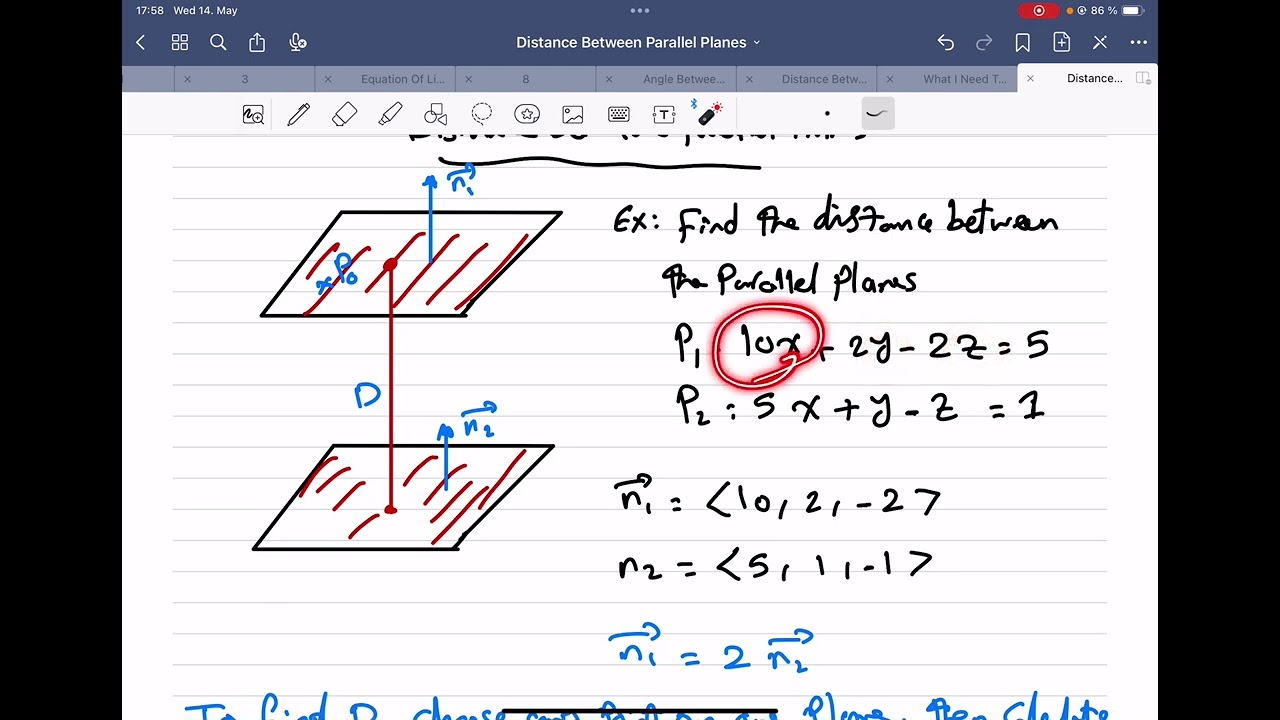 17:58 Wed 14. May
86 %
Distance Between Parallel Planes
3
Equation Of Li...
8
Angle Betwee...
Distance Betw...
What I Need T...
Distance...
T
n₁
Ex: Find the distance between
the Parallel Planes
P₀
P₁ 10x + 2y - 2z = 5
P₂ : 5x + y - z = 1
D
n₂
n₁ = <10, 2, -2>
n₂ = <5, 1, -1>
n₁ = 2 n₂
To find D, choose any Point on one Plane, then calculate